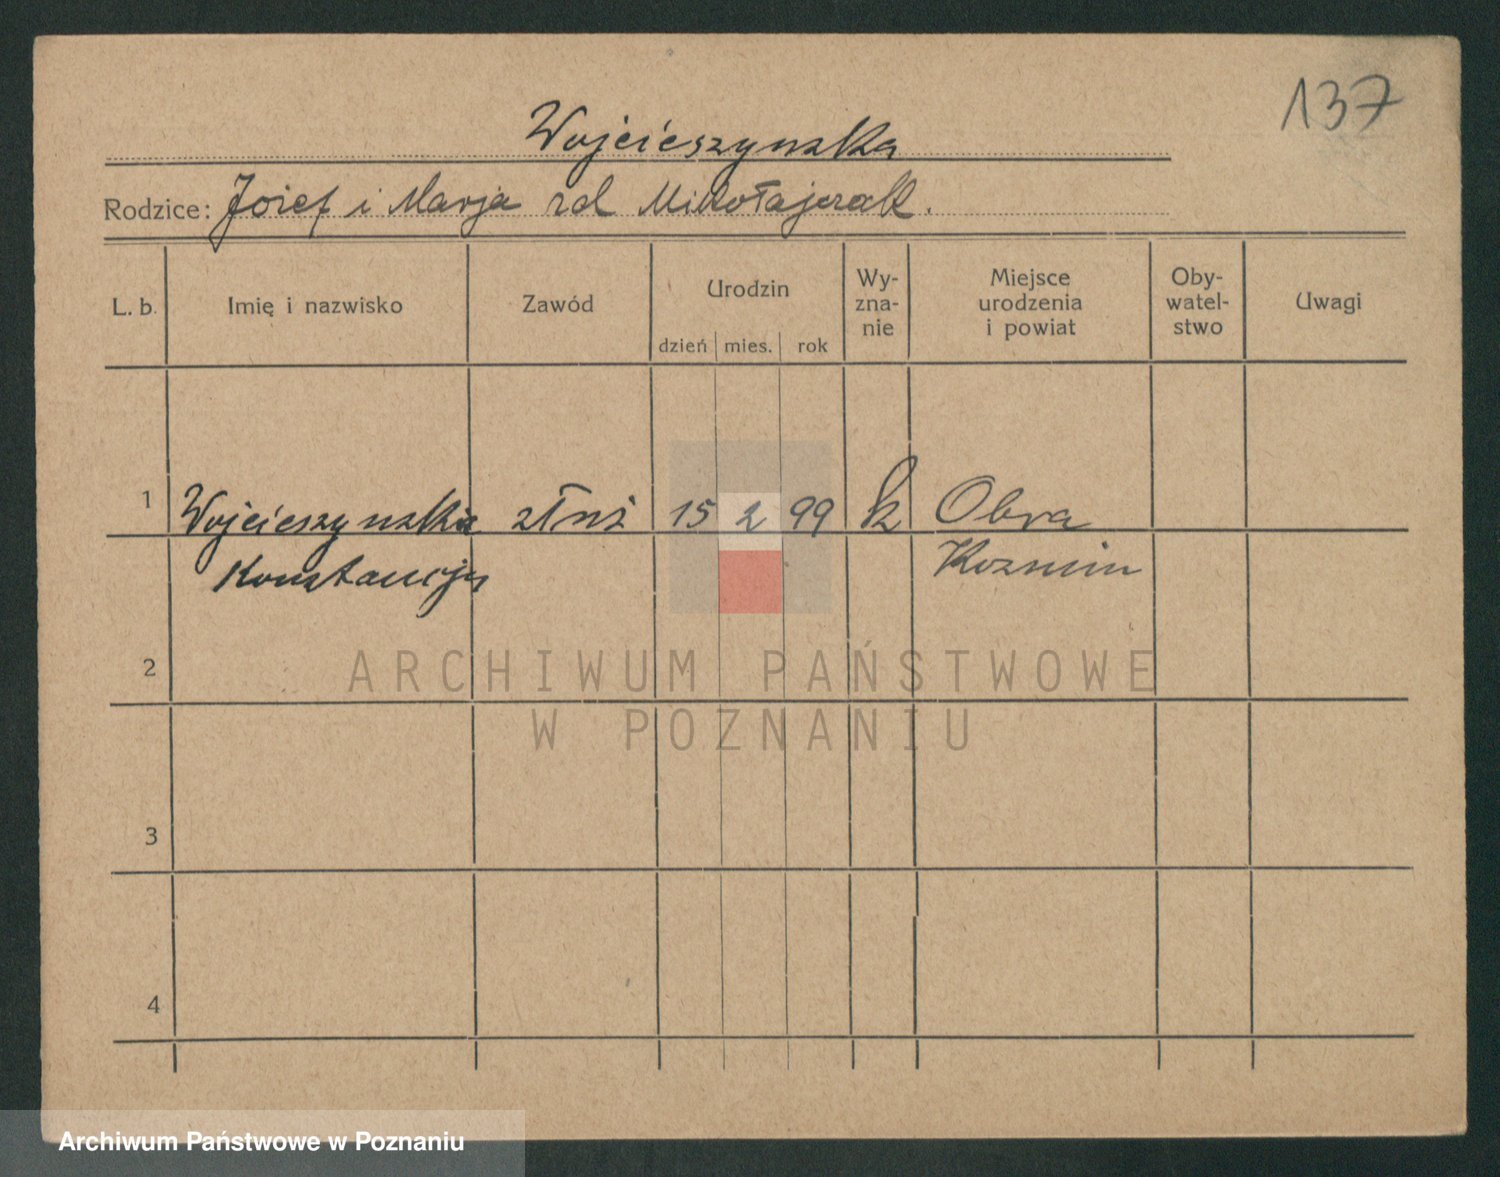 137
Wojcieszynska
Rodzice: Józef i Marja zd Mikołajczak.
L. b. Imię i nazwisko Zawód Urodzin dzień mies. rok Wy-zna-nie Miejsce urodzenia i powiat Oby-watel-stwo Uwagi
1 Wojcieszynska 15 2 99 k Obra
Konstancja Kozmin
2
ARCHIWUM PAŃSTWOWE
W POZNANIU
3
4
Archiwum Państwowe w Poznaniu